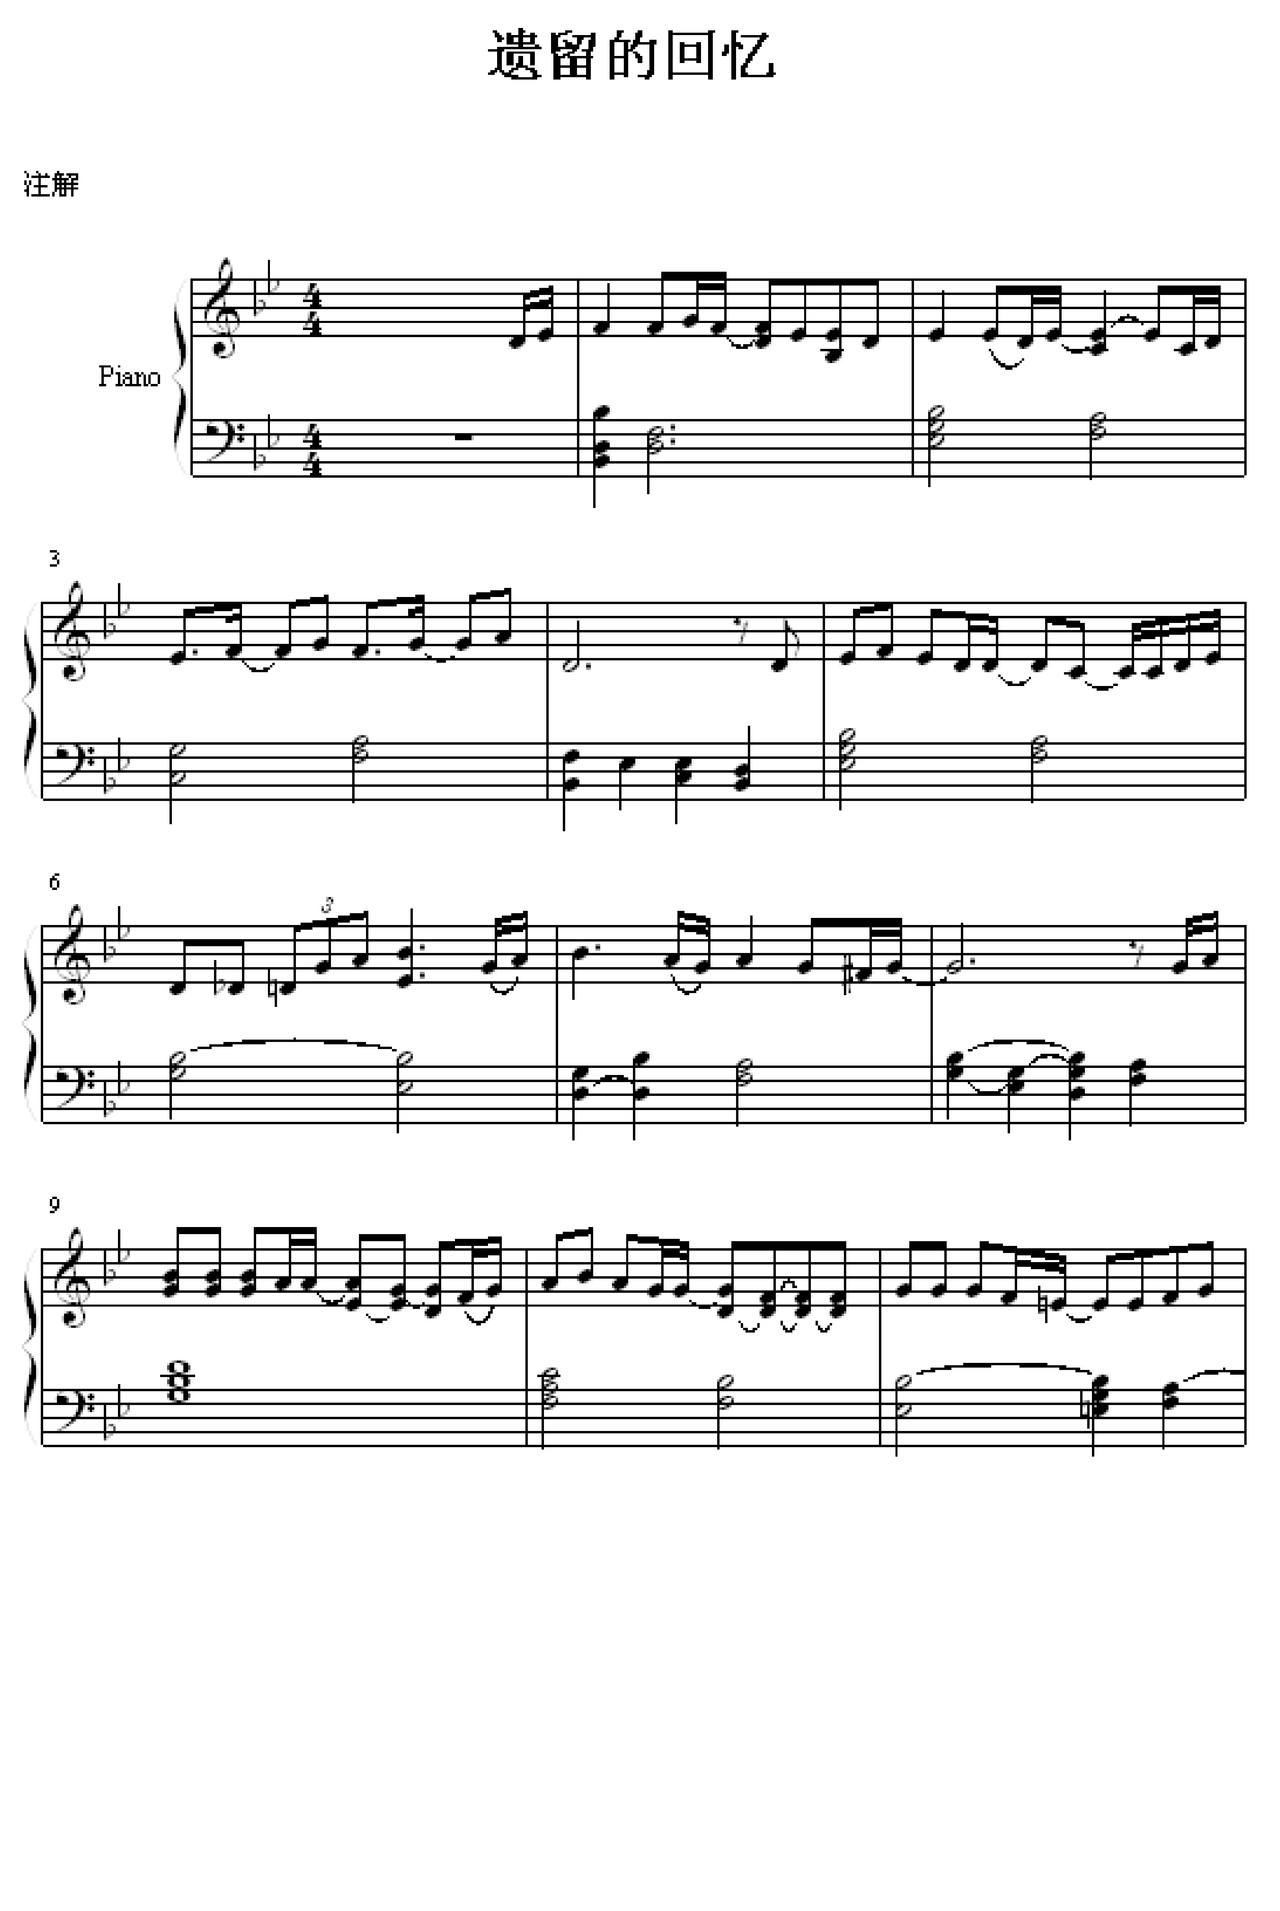 遗留的回忆
注解
4
4
Piano
4
4
3
6
3
9